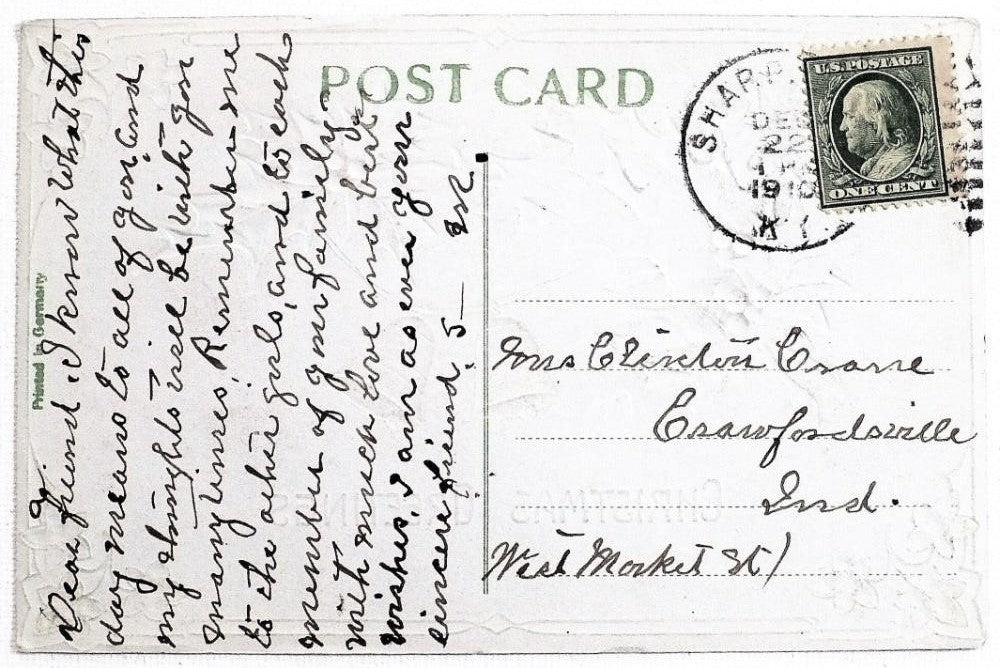 POST CARD
Printed in Germany
Dear friend, I know what this
day means to all of you, and
my thoughts will be with you
many times. Remember me
to the other girls, and to each
member of your family
With much love and best
wishes, I am as ever your
sincere friend,
SHARP
DEC
22
1910
U.S. POSTAGE
ONE CENT
Mrs Clinton Crane
Crawfordsville
Ind.
West Market St
CHRISTMAS GREETINGS